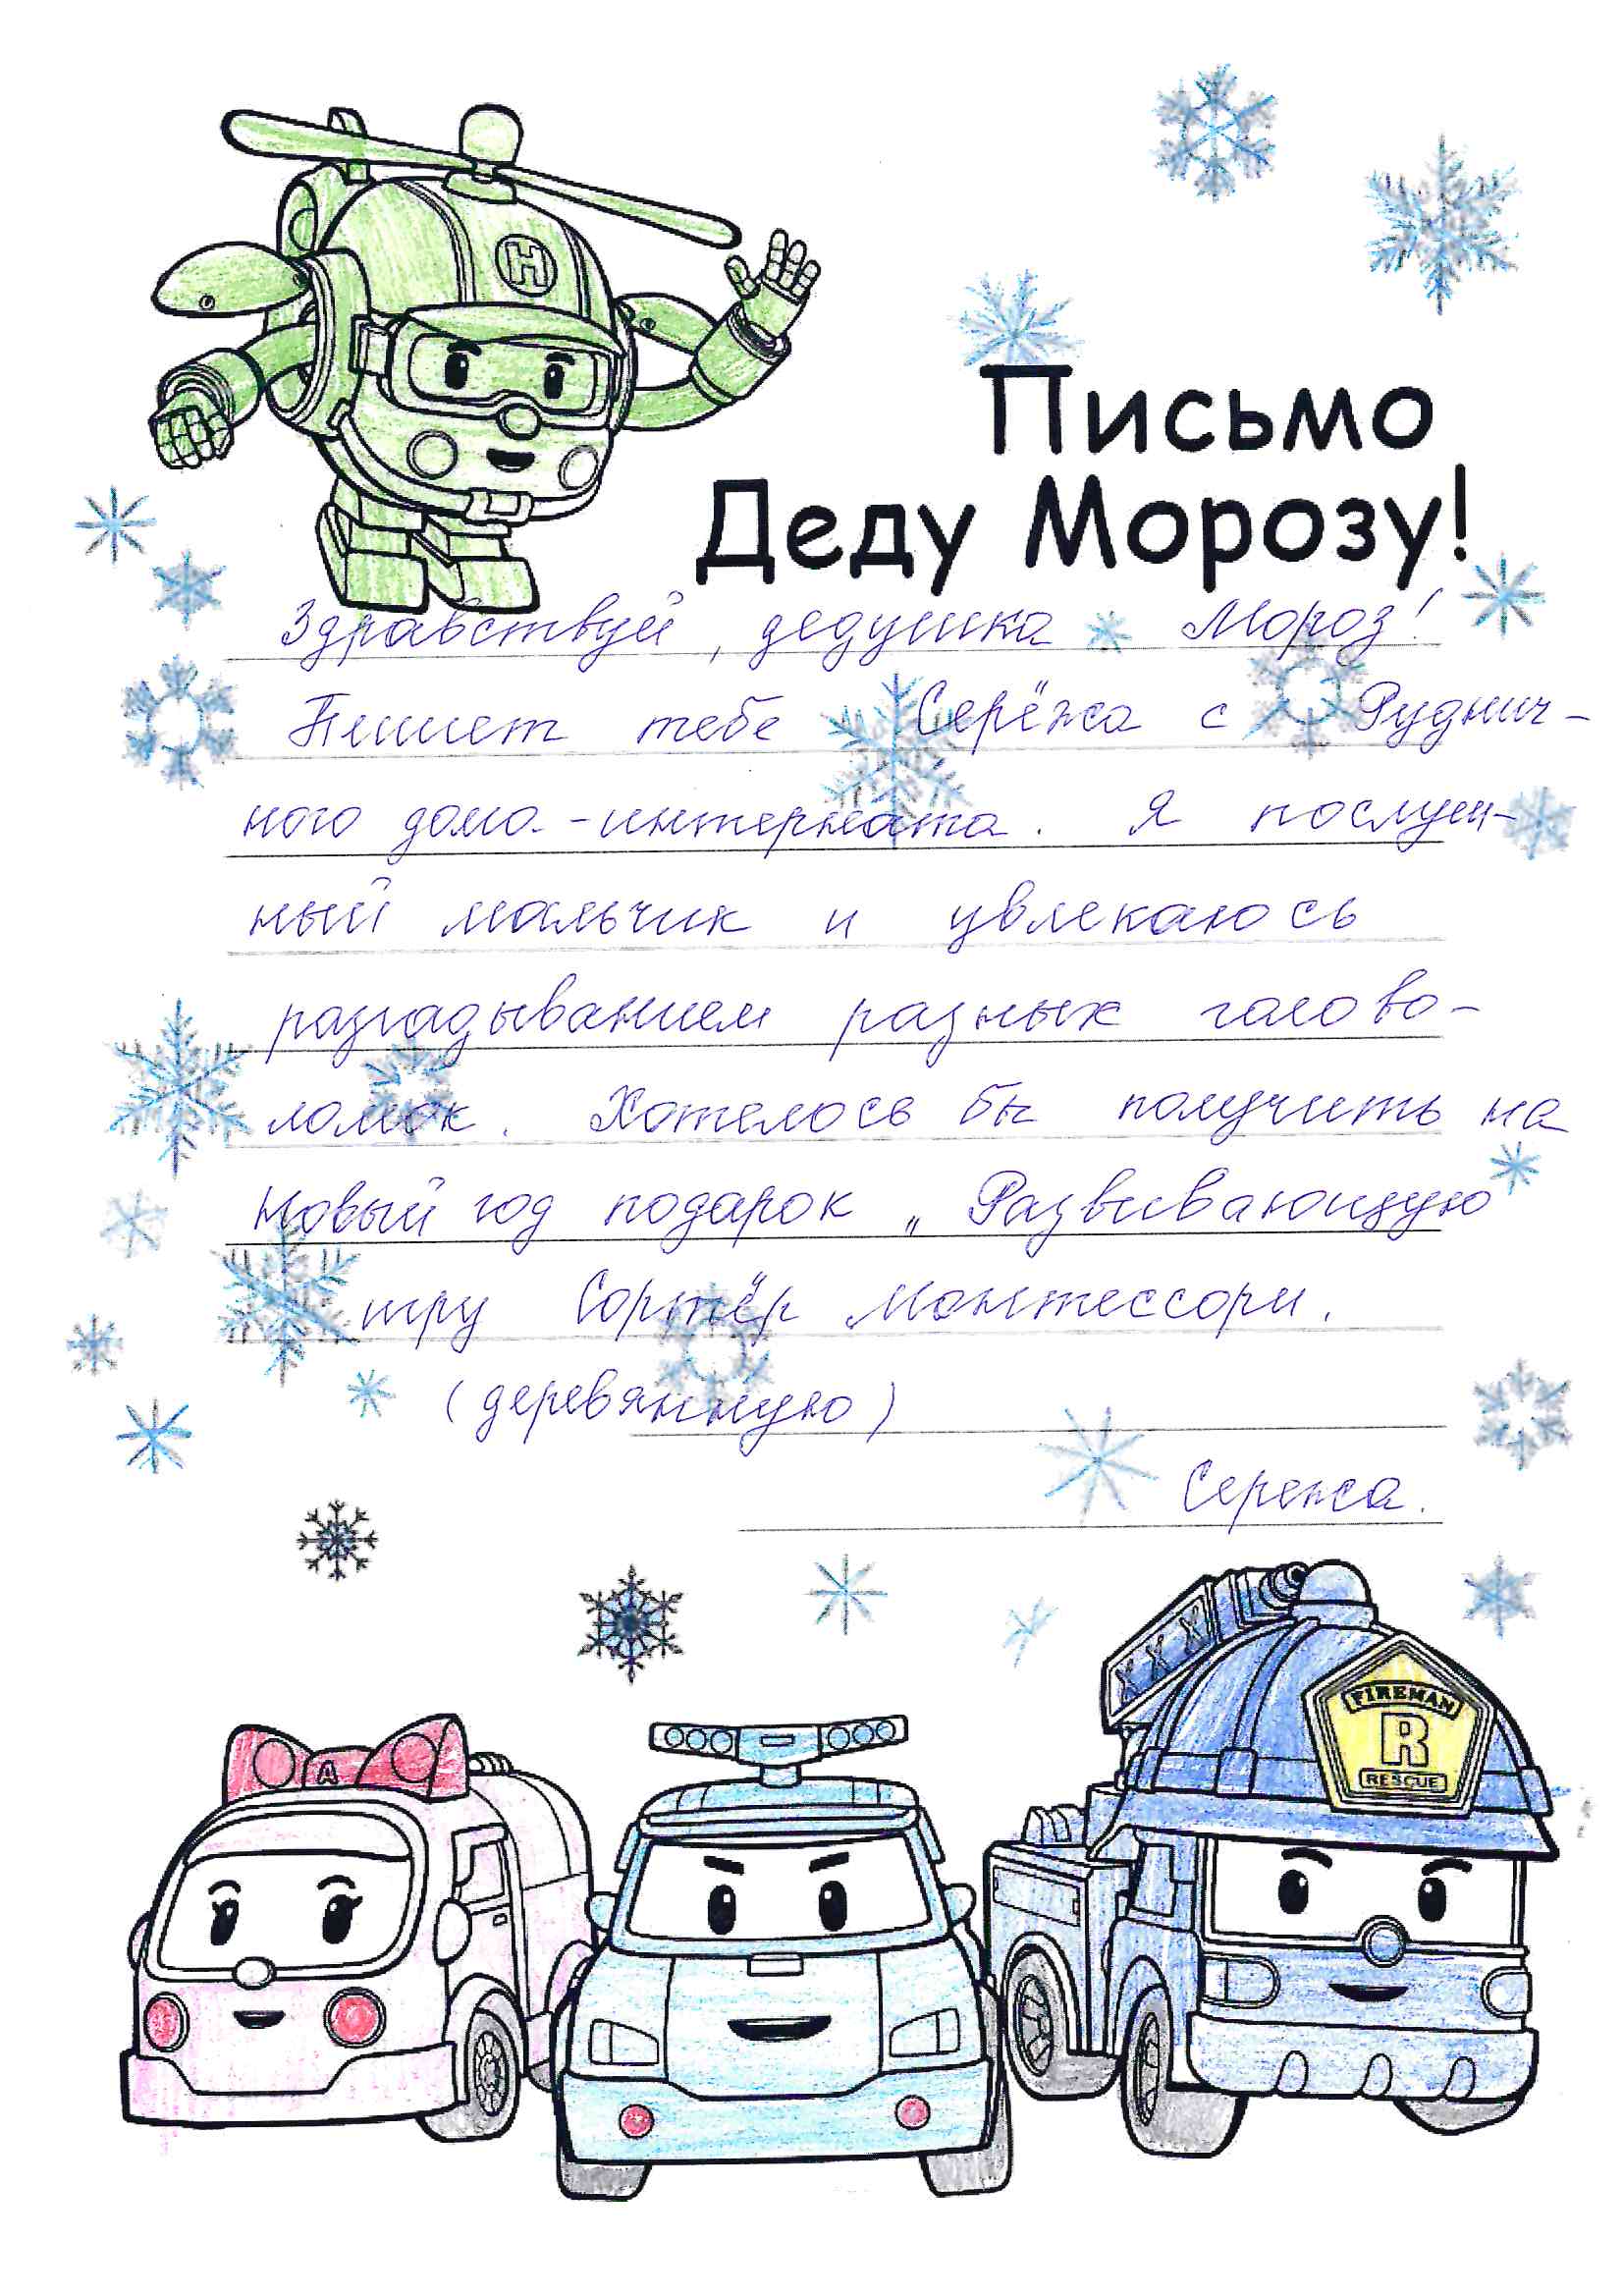 Письмо
Деду Морозу!
Здравствуй, дедушка Мороз!
Пишет тебе Серёжа с Руднич-
ного дома-интерната. Я послуш-
ный мальчик и увлекаюсь
разгадыванием разных голово-
ломок. Хотелось бы получить на
Новый год подарок „Развивающую
игру Сортёр Монтессори.
(деревянную)
Сережа.
H
A
FIREMAN
R
RESCUE